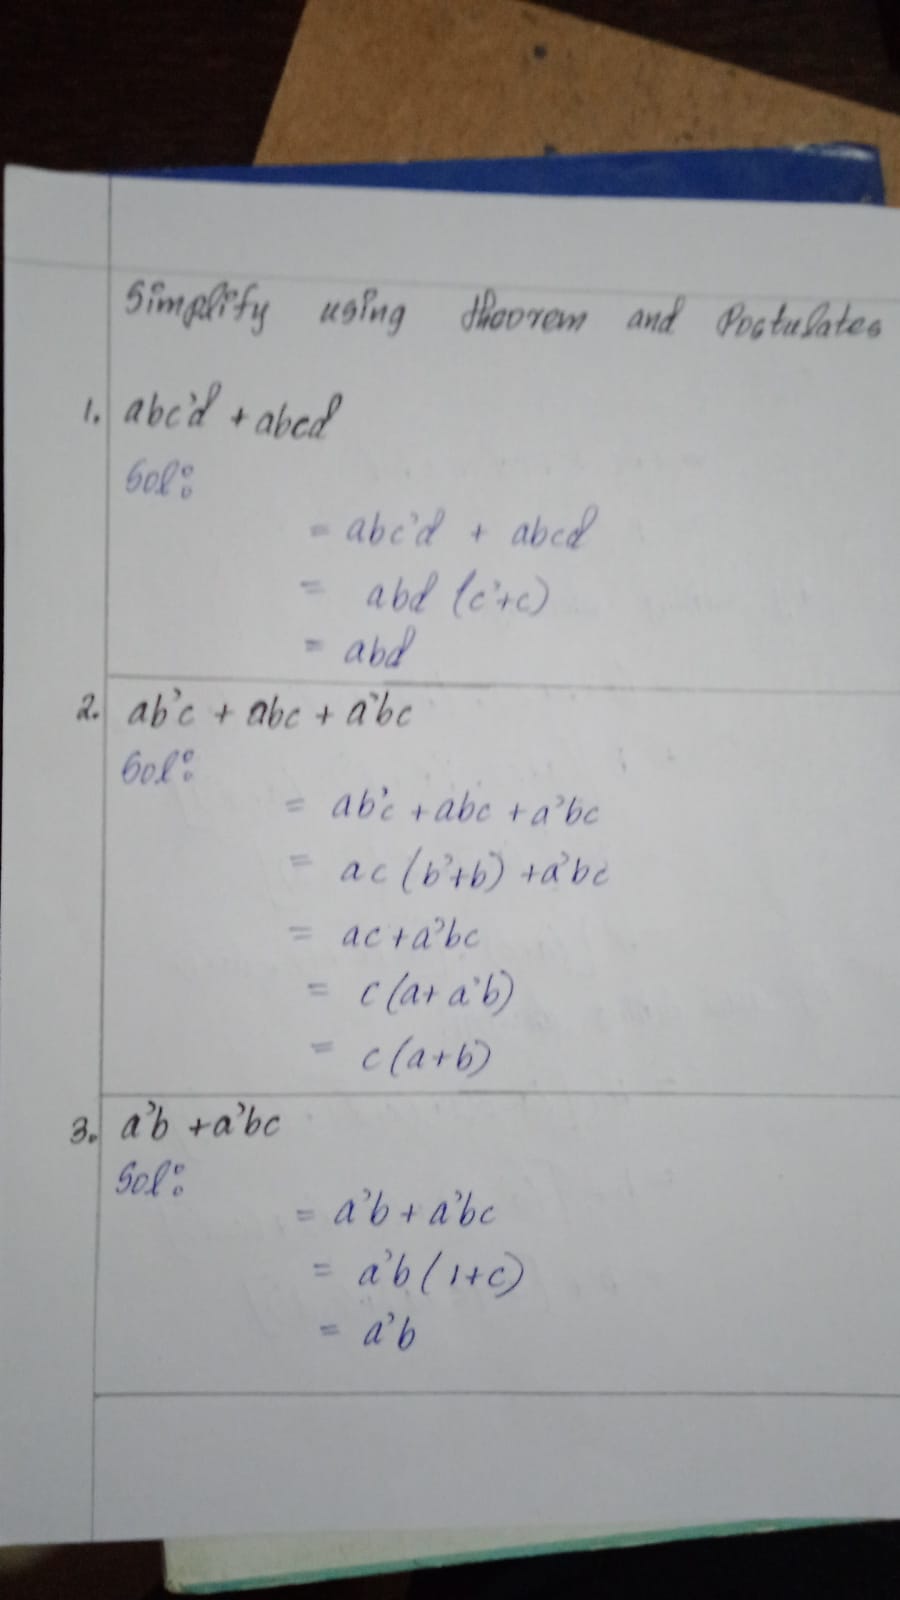 Simplify using theorem and Postulates
1. abc'd + abcd
Sol:
= abc'd + abcd
= abd (c'+c)
= abd
2. ab'c + abc + a'bc
Sol:
= ab'c + abc + a'bc
= ac (b'+b) + a'bc
= ac + a'bc
= c (a + a'b)
= c (a+b)
3. a'b + a'bc
Sol:
= a'b + a'bc
= a'b (1+c)
= a'b